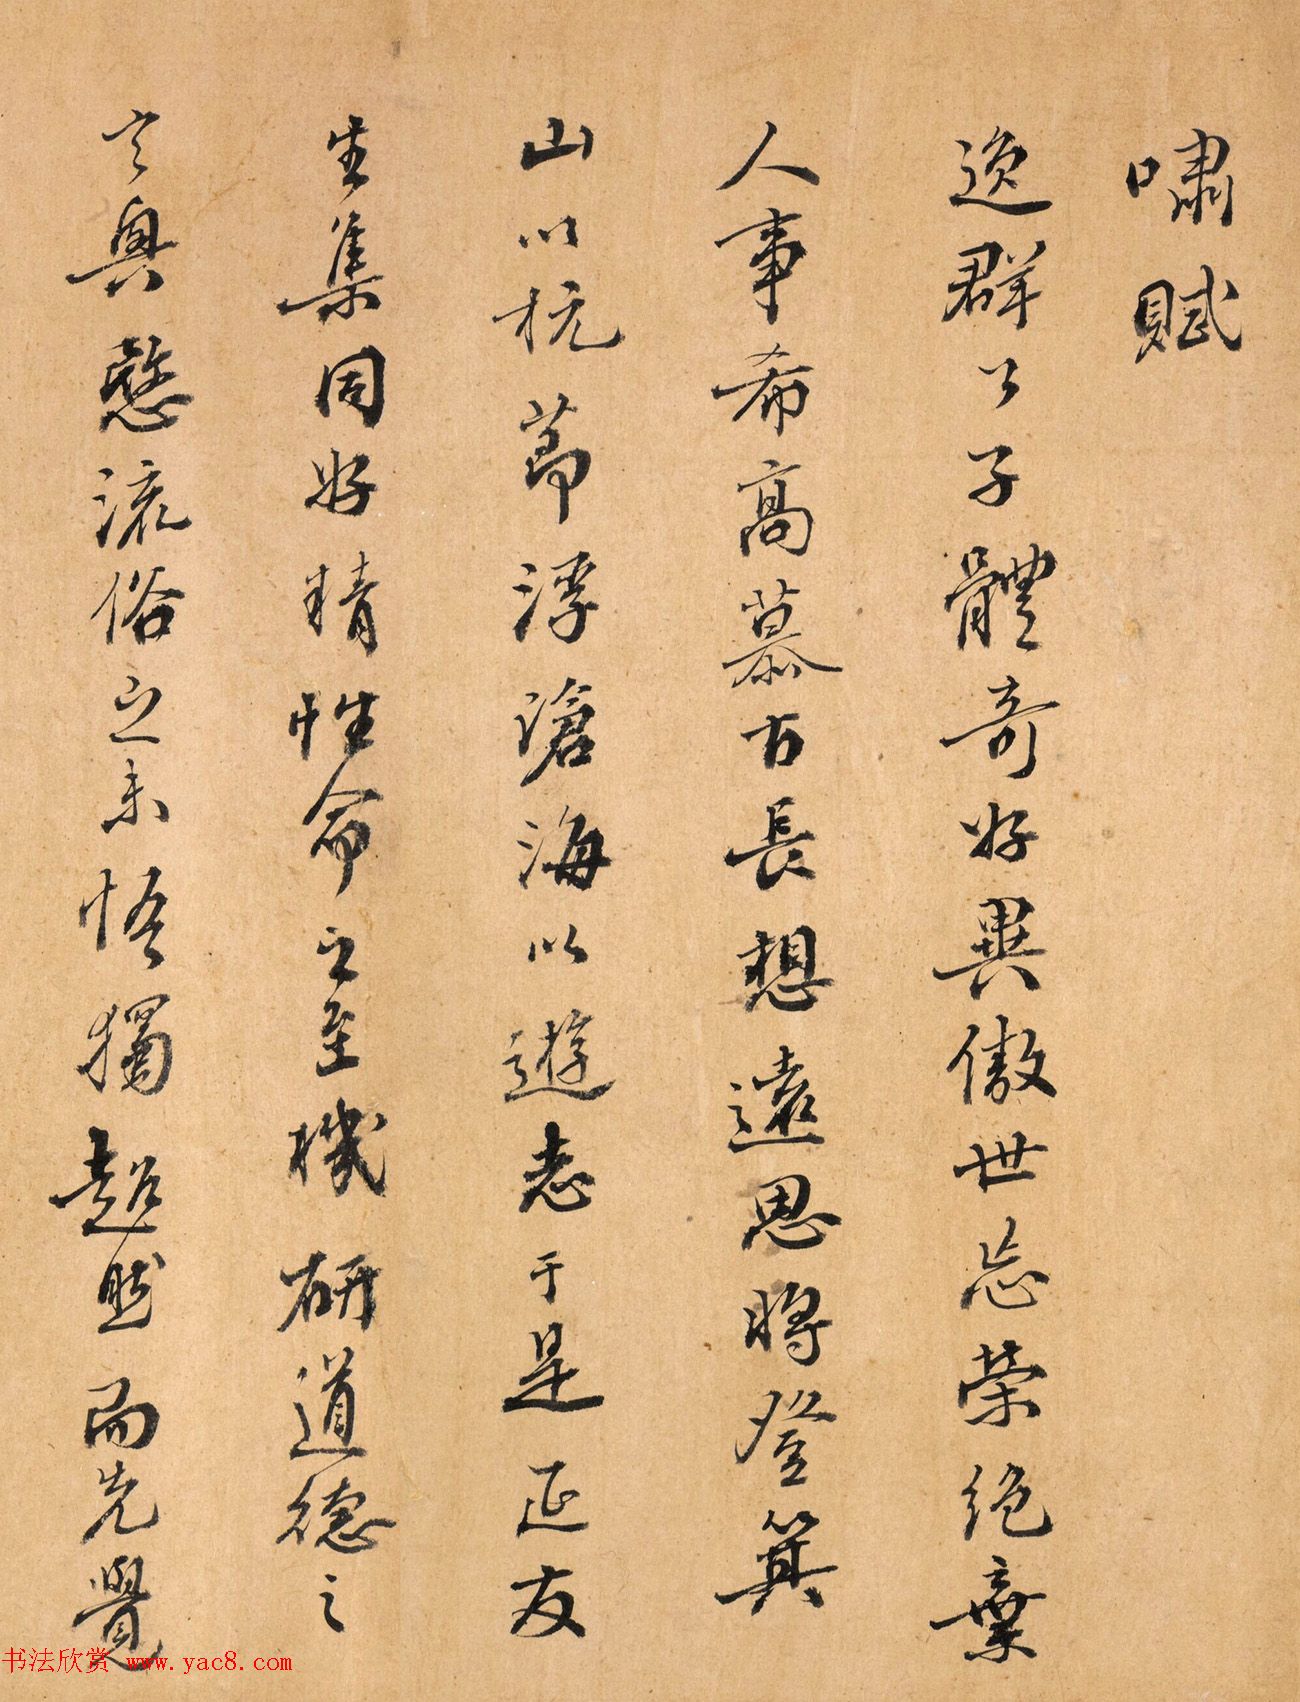 嘯賦
逸群公子體奇好異傲世忘榮絕棄
人事希高慕古長想遠思將登箕
山以抗節浮滄海以遊志于是延友
生集同好精性命之至機研道德之
玄奧愍流俗之未悟獨超然而先覺
书法欣赏 www.yac8.com